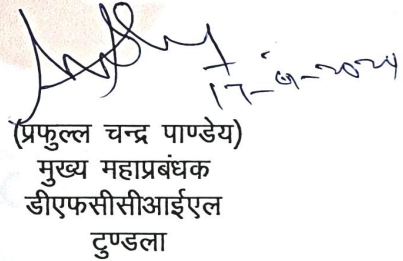 (प्रफुल्ल चन्द्र पाण्डेय)
मुख्य महाप्रबंधक
डीएफसीसीआईएल
टुण्डला